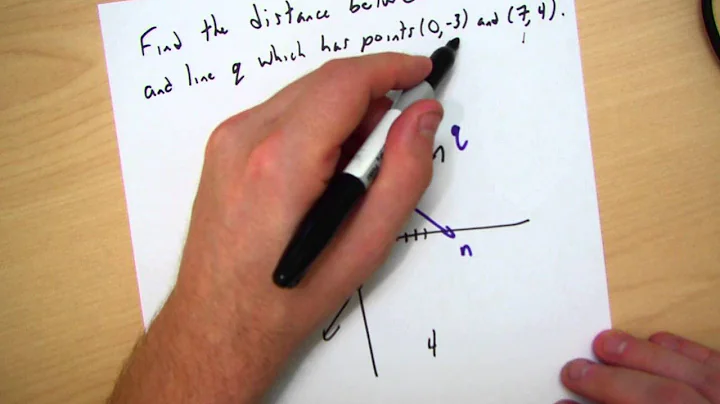 Find the distance
and line q which has points (0,-3) and (7,4).
q
n
4